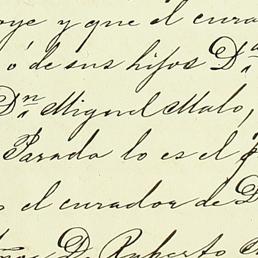 oye y que el cura
ó de sus hijos Dª
Dⁿ Miguel Malo,
Parada lo es el
el curador de D
D. Ruperto